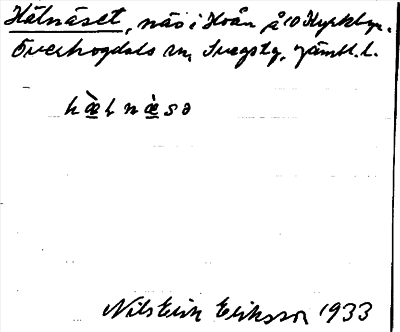 Hälnäset, näs i Hoån å 10 Kyrkbyn.
Överhogdals sn, Svegstg, Jämtl. l.
hæ̀lnæ̀sə
Nils Erik Eriksson 1933